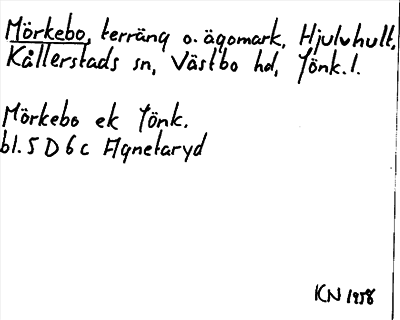 Mörkebo, terräng o. ägomark, Hjulvhult,
Kållerstads sn, Västbo hd, Jönk. l.
Mörkebo ek Jönk.
bl. 5 D 6 c Agnetaryd
KN 1958